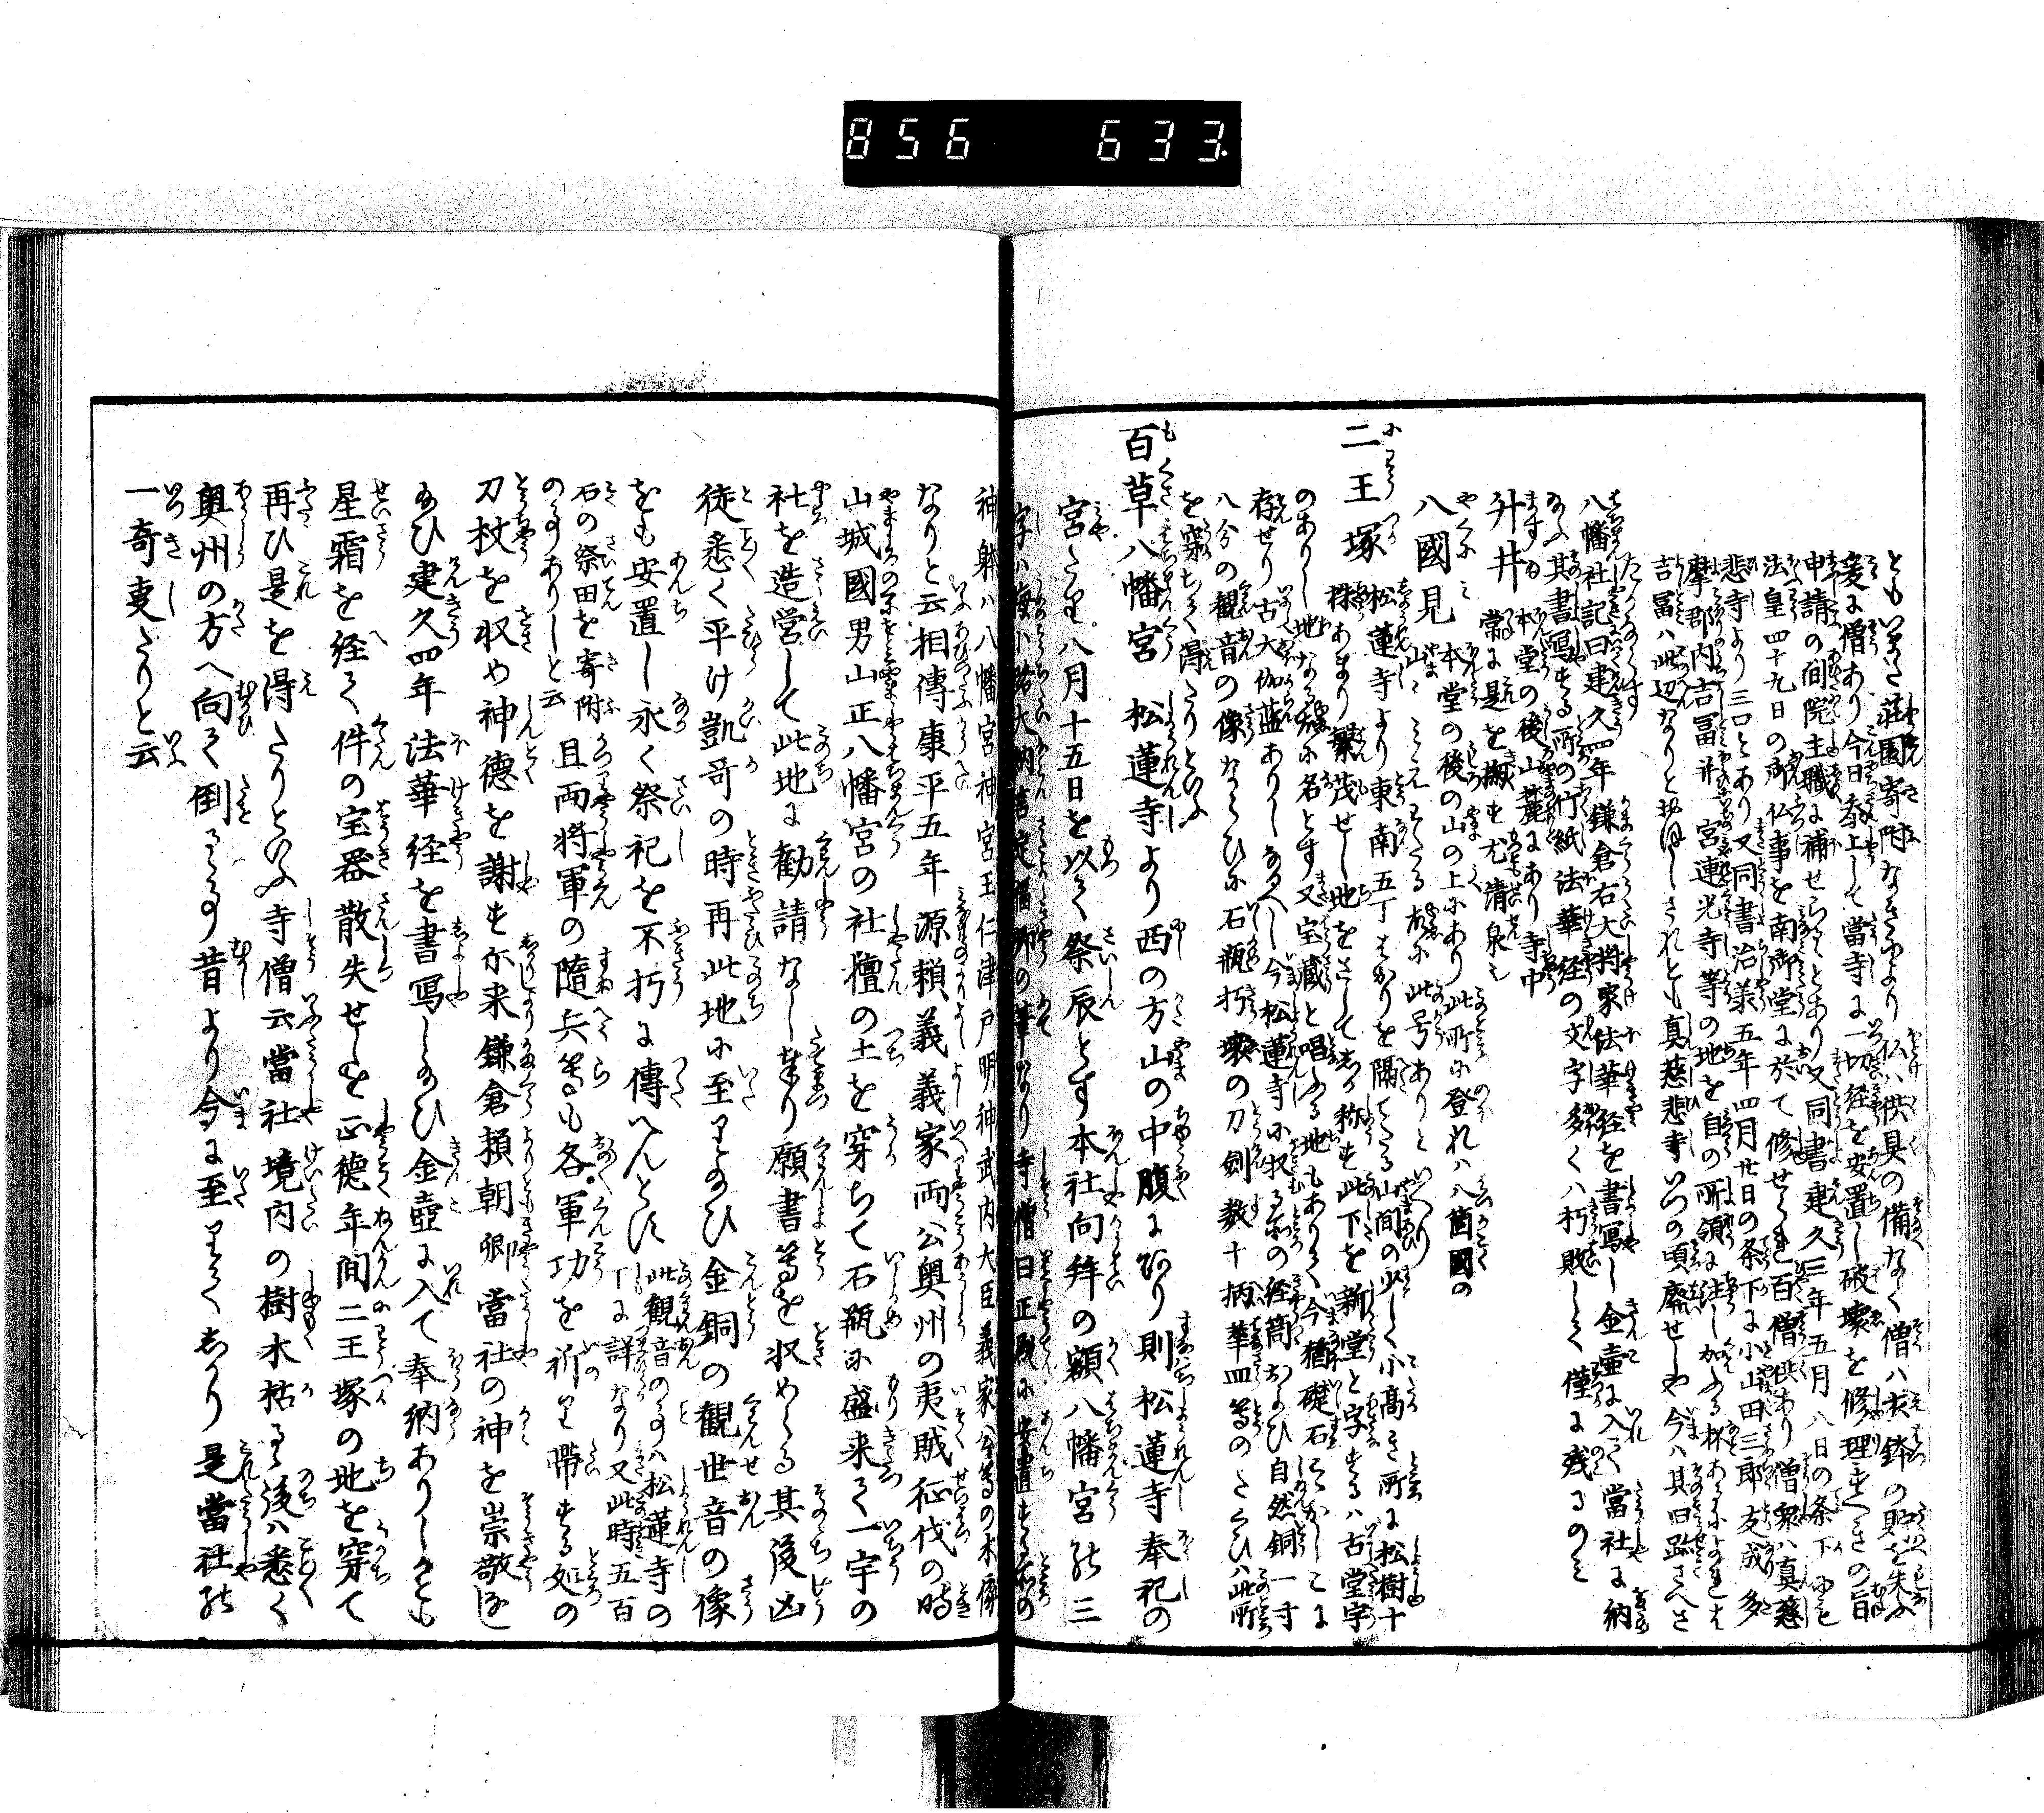 856 633
ともいまた荘園寄附なきにより仏ハ供具の備なく僧ハ衣鉢の貯を失ふ
爰に僧あり今日参上して當寺に一切経を安置し破壊を修理すへきの旨
申請の間院主職に補せらるゝとあり又同書建久三年五月八日の条下にも
法皇四十九日の御仏事を南御堂に於て修せらる百僧供あり僧衆ハ真慈
悲寺より三口とあり又同書治承五年四月廿日の条下に小山田三郎友成多
摩郡内吉冨并宮蓮光寺等の地を自の所領に注し加ふる
吉冨ハ此辺なりとおほしされとも真慈悲寺いつの頃廃せしや今ハ其旧趾さへさ
たかならす
八幡社記曰建久四年鎌倉右大将家法華経を書写し金壷に入て當社に納
其書写する所の竹紙法華経の文字多くハ朽敗して僅に残るのミ
升井 本堂の後山麓にあり寺中
常に是を掬す尤清泉也
八國見 本堂の後の山の上にあり此所に登れハ八箇國の
山々ミえわたる故に此号ありといへり
二王塚 松蓮寺より東南五丁はかりを隔てたる山間の少しく小高き所に松樹十
株あまり繁茂せし地をさしてしか称す此下を新堂と字するハ古堂宇
のありし地なる故に名とす又宝蔵と唱ふる地もありて今猶礎石
存せり古大伽藍ありしなるへし今松蓮寺に収る所の経筒およひ自然銅一寸
八分の観音の像ならひに石瓶朽壊の刀劍数十柄華皿等のたくひハ此所
を穿ちて得たりといふ
百草八幡宮 松蓮寺より西の方山の中腹にあり則松蓮寺奉祀の
宮たり八月十五日を以て祭辰とす本社向拜の額八幡宮の三
字ハ梅小路大納言定福卿の筆なり寺僧曰正殿に安置する所の
神躰ハ八幡宮神宮王仁津戸明神武内大臣義家公等の木像
なりと云相傳康平五年源頼義義家両公奥州の夷賊征伐の時
山城國男山正八幡宮の社檀の土を穿ちて石瓶に盛来て一宇の
社を造営して此地に勧請なし奉り願書等を収めらる其後凶
徒悉く平け凱哥の時再此地に至りたまひ金銅の観世音の像
をも安置し永く祭祀を不朽に傳へんとす 此観音の事ハ松蓮寺の
下に詳なり又此時五百
石の祭田を寄附
の事ありしと云 且両将軍の隨兵等も各軍功を祈り帶する処の
刀杖を収め神德を謝す尓来鎌倉頼朝卿當社の神を崇敬し
たまひ建久四年法華経を書写したまひ金壷に入て奉納ありしかとも
星霜を経て件の宝器散失せしを正德年間二王塚の地を穿て
再ひ是を得たりといふ寺僧云當社境内の樹木枯るゝ後ハ悉く
奥州の方へ向て倒るゝ事昔より今に至りてしかり是當社の
一奇事たりと云